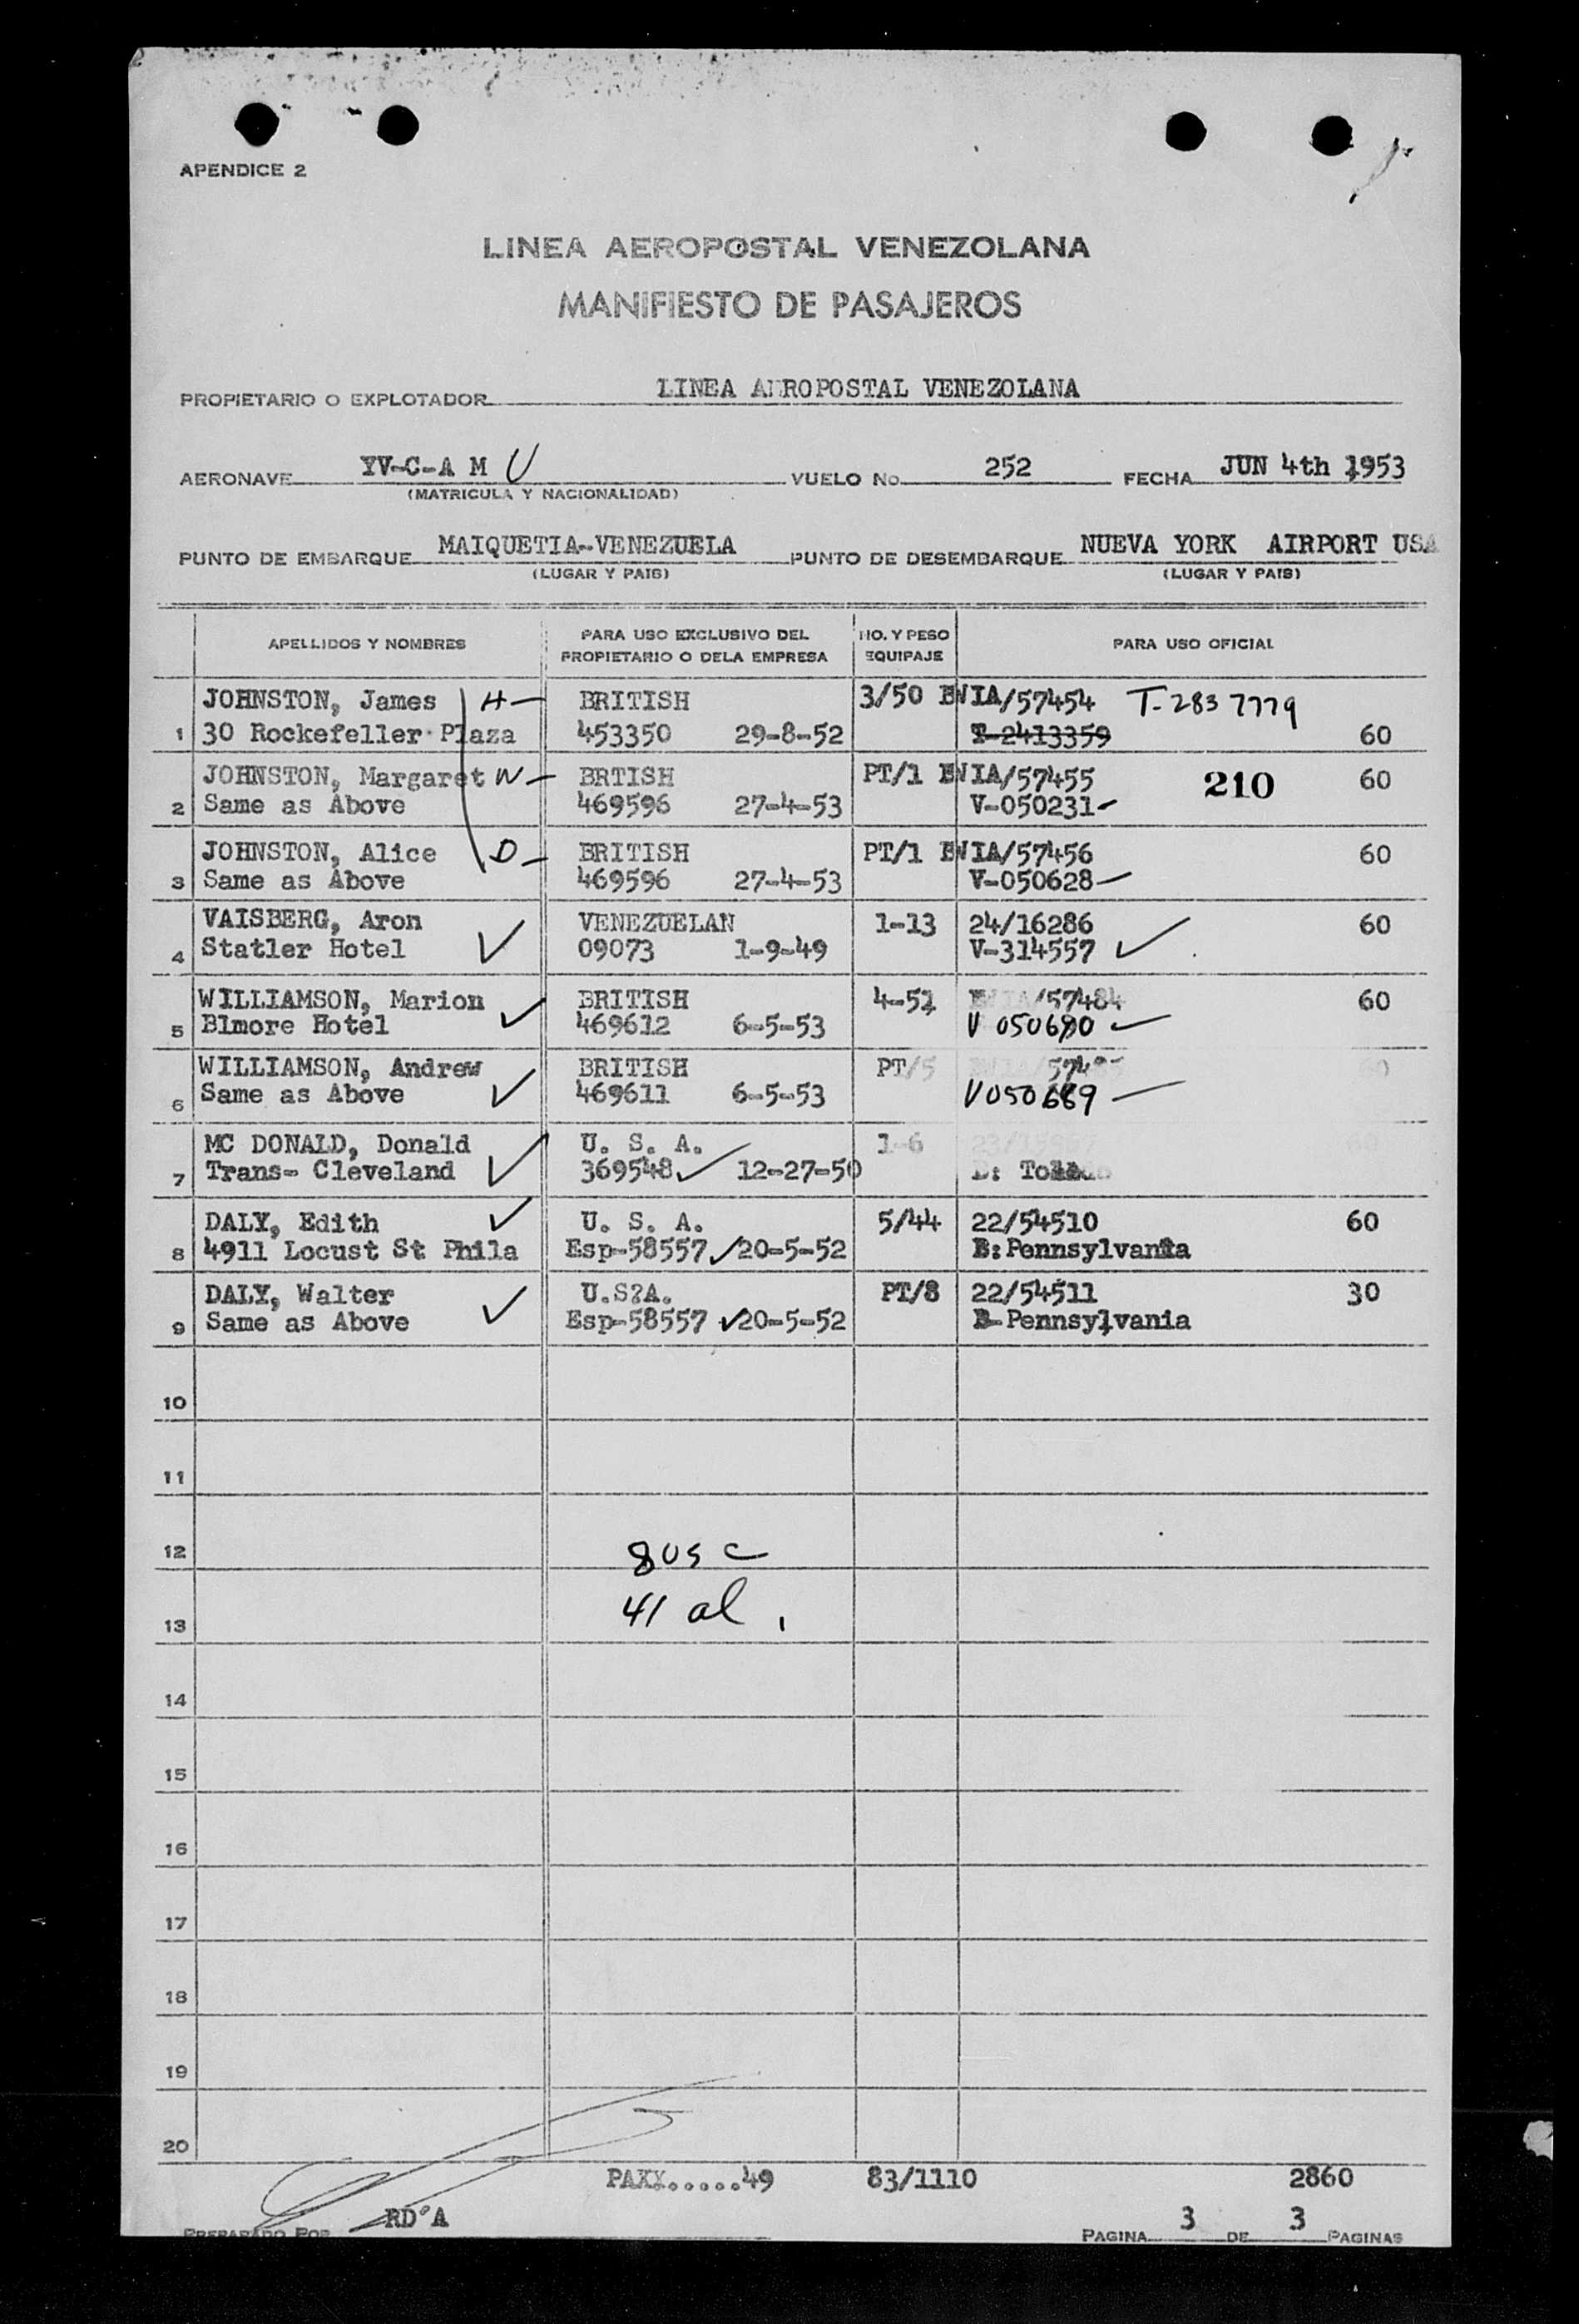 APENDICE 2
LINEA AEROPOSTAL VENEZOLANA
MANIFIESTO DE PASAJEROS
PROPIETARIO O EXPLOTADOR LINEA AEROPOSTAL VENEZOLANA
AERONAVE YV-C-A M U VUELO No. 252 FECHA JUN 4th 1953
(MATRICULA Y NACIONALIDAD)
PUNTO DE EMBARQUE MAIQUETIA--VENEZUELA PUNTO DE DESEMBARQUE NUEVA YORK AIRPORT USA
(LUGAR Y PAIS) (LUGAR Y PAIS)
APELLIDOS Y NOMBRES PARA USO EXCLUSIVO DEL PROPIETARIO O DE LA EMPRESA NO. Y PESO EQUIPAJE PARA USO OFICIAL
JOHNSTON, James H- BRITISH 3/50 BWIA/57454 T-2837779
1 30 Rockefeller Plaza 453350 29-8-52 T-2413359 60
JOHNSTON, Margaret W- BRTISH PT/1 BWIA/57455 210 60
2 Same as Above 469596 27-4-53 V-050231
JOHNSTON, Alice D- BRITISH PT/1 BWIA/57456 60
3 Same as Above 469596 27-4-53 V-050628
VAISBERG, Aron VENEZUELAN 1-13 24/16286 60
4 Statler Hotel 09073 1-9-49 V-314557
WILLIAMSON, Marion BRITISH 4-51 BWIA/57484 60
5 Elmore Hotel 469612 6-5-53 V 050690
WILLIAMSON, Andrew BRITISH PT/5 BWIA/57485 60
6 Same as Above 469611 6-5-53 V050689
MC DONALD, Donald U. S. A. 1-6
7 Trans- Cleveland 369548 12-27-50 B: Toledo
DALY, Edith U. S. A. 5/44 22/54510 60
8 4911 Locust St Phila Esp-58557 20-5-52 B: Pennsylvania
DALY, Walter U.S?A. PT/8 22/54511 30
9 Same as Above Esp-58557 20-5-52 B-Pennsylvania
10
11
12 8 usc
13 41 al
14
15
16
17
18
19
20
PAXX.....49 83/1110 2860
PREPARADO POR RD'A PAGINA 3 DE 3 PAGINAS